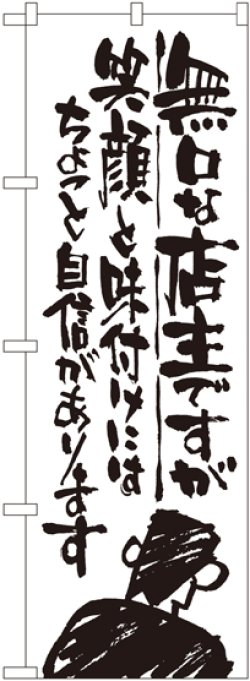 無口な店主ですが
笑顔と味付けには
ちょっと自信があります